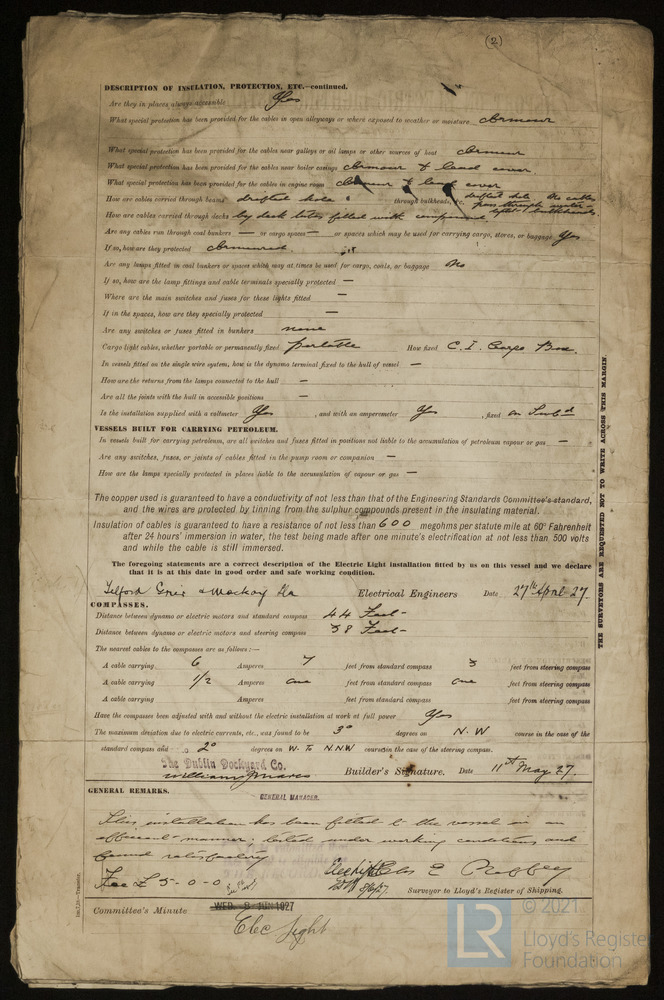 (2)
DESCRIPTION OF INSULATION, PROTECTION, ETC.—continued.
Are they in places always accessible Yes
What special protection has been provided for the cables in open alleyways or where exposed to weather or moisture Armour
What special protection has been provided for the cables near galleys or oil lamps or other sources of heat Armour
What special protection has been provided for the cables near boiler casings Armour & lead cover
What special protection has been provided for the cables in engine room Armour & lead cover
How are cables carried through beams Drifted hole through bulkheads, &c. Drifted hole The cables pass through water tight bulkheads
How are cables carried through decks by deck tubes filled with compound
Are any cables run through coal bunkers — or cargo spaces — or spaces which may be used for carrying cargo, stores, or baggage Yes
If so, how are they protected Armoured
Are any lamps fitted in coal bunkers or spaces which may at times be used for cargo, coals, or baggage No
If so, how are the lamp fittings and cable terminals specially protected —
Where are the main switches and fuses for these lights fitted —
If in the spaces, how are they specially protected —
Are any switches or fuses fitted in bunkers none
Cargo light cables, whether portable or permanently fixed portable How fixed C. I. Cargo Box.
In vessels fitted on the single wire system, how is the dynamo terminal fixed to the hull of vessel —
How are the returns from the lamps connected to the hull —
Are all the joints with the hull in accessible positions —
Is the installation supplied with a voltmeter Yes , and with an amperemeter Yes , fixed on Swbd
VESSELS BUILT FOR CARRYING PETROLEUM.
In vessels built for carrying petroleum, are all switches and fuses fitted in positions not liable to the accumulation of petroleum vapour or gas —
Are any switches, fuses, or joints of cables fitted in the pump room or companion —
How are the lamps specially protected in places liable to the accumulation of vapour or gas —
The copper used is guaranteed to have a conductivity of not less than that of the Engineering Standards Committee's standard,
and the wires are protected by tinning from the sulphur compounds present in the insulating material.
Insulation of cables is guaranteed to have a resistance of not less than 600 megohms per statute mile at 60° Fahrenheit
after 24 hours' immersion in water, the test being made after one minute's electrification at not less than 500 volts
and while the cable is still immersed.
The foregoing statements are a correct description of the Electric Light installation fitted by us on this vessel and we declare
that it is at this date in good order and safe working condition.
Telford Grier & Mackay Ltd Electrical Engineers Date 27th April 27.
COMPASSES.
Distance between dynamo or electric motors and standard compass 44 Feet
Distance between dynamo or electric motors and steering compass 38 Feet
The nearest cables to the compasses are as follows:—
A cable carrying 6 Amperes 7 feet from standard compass 3 feet from steering compass
A cable carrying 1/2 Amperes one feet from standard compass one feet from steering compass
A cable carrying Amperes feet from standard compass feet from steering compass
Have the compasses been adjusted with and without the electric installation at work at full power Yes
The maximum deviation due to electric currents, etc., was found to be 3° degrees on N.W course in the case of the
standard compass and 2° degrees on W. To N.N.W course in the case of the steering compass.
The Dublin Dockyard Co.
Builder's Signature. Date 11st May 27.
GENERAL MANAGER.
GENERAL REMARKS.
This installation has been fitted to the vessel in an
efficient manner, tested under working conditions and
found satisfactory
Fee £5-0-0
Elec Light
Surveyor to Lloyd's Register of Shipping.
Committee's Minute WED. 8 JUN 1927
Elec Light
THE SURVEYORS ARE REQUESTED NOT TO WRITE ACROSS THIS MARGIN.
LR
© 2021
Lloyd's Register
Foundation